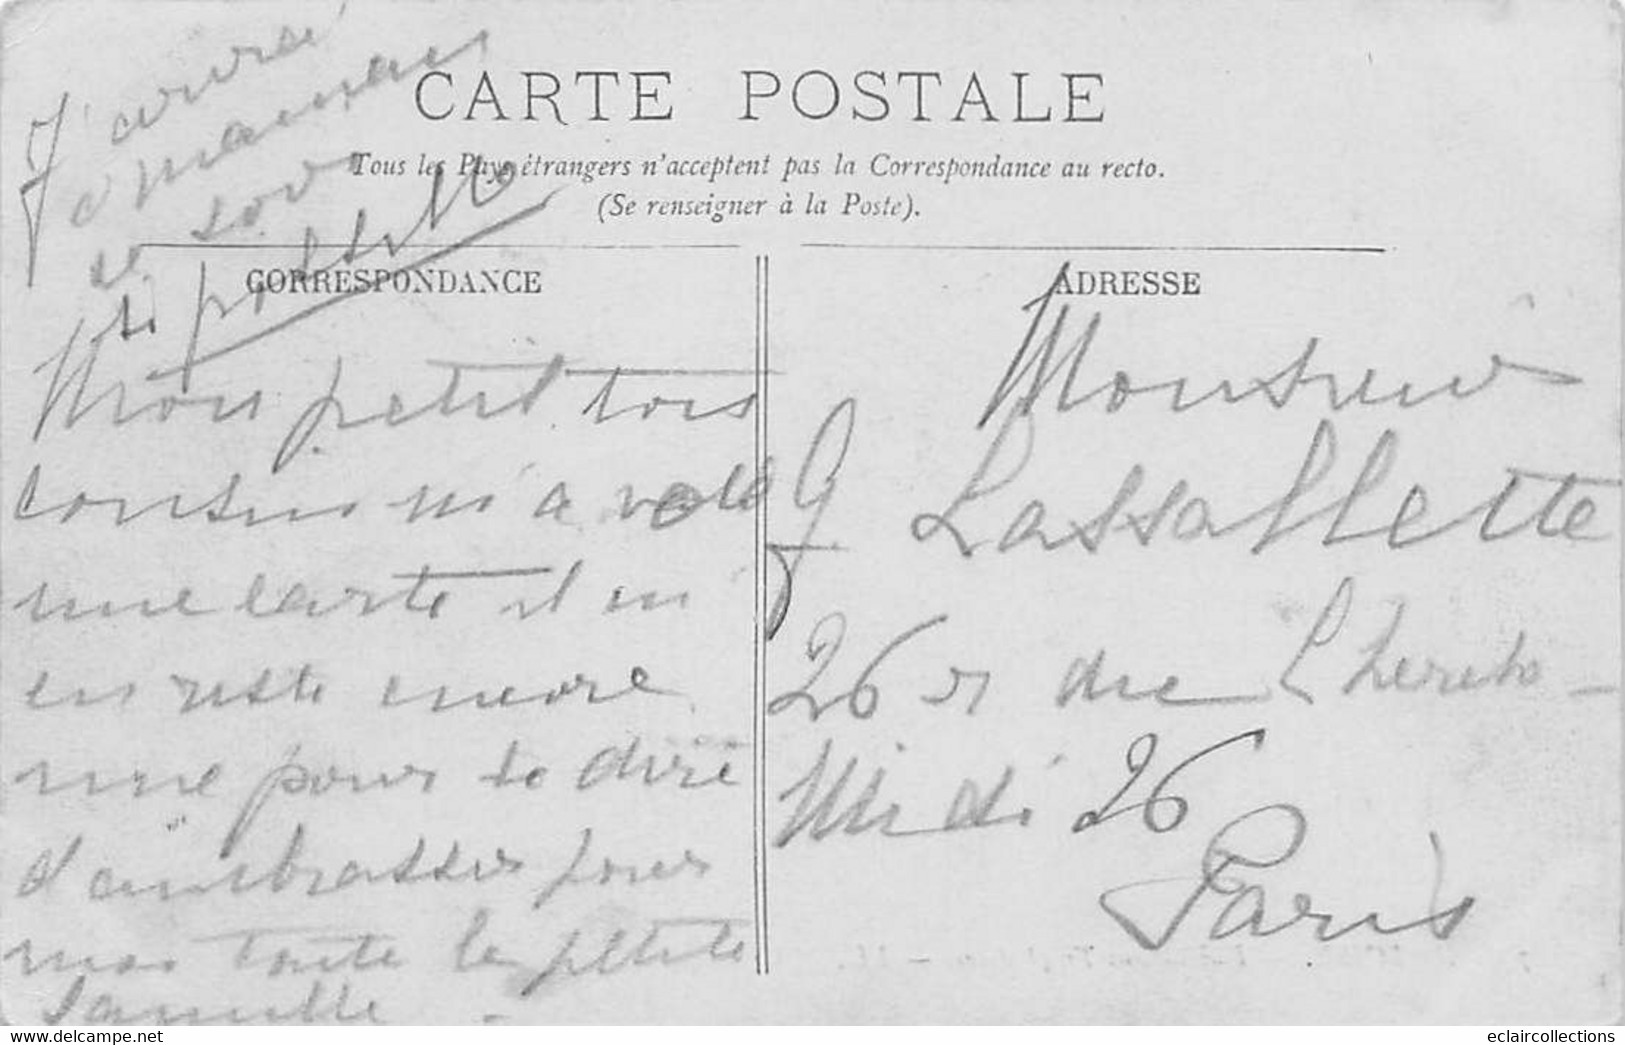 J'ecrirai
a maman
ce soir
si possible
CARTE POSTALE
Tous les Pays étrangers n'acceptent pas la Correspondance au recto.
(Se renseigner à la Poste).
CORRESPONDANCE
Mon petit tous
cousin m'a volé
une carte il en
en reste encore
une pour te dire
d'embrasser pour
moi toute la petite
famille -
ADRESSE
Monsieur
G Lassallette
26 r du Cherche-
Midi 26
Paris
delcampe.net
eclaircollections